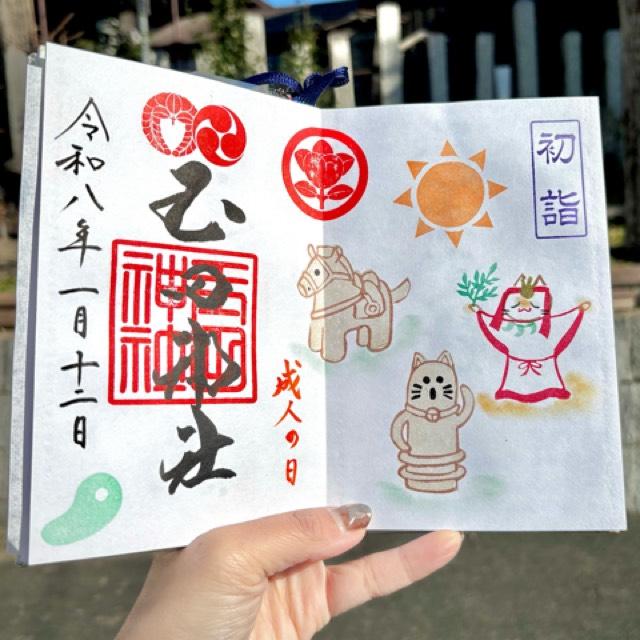 初詣
成人の日
玉田神社
令和八年一月十二日